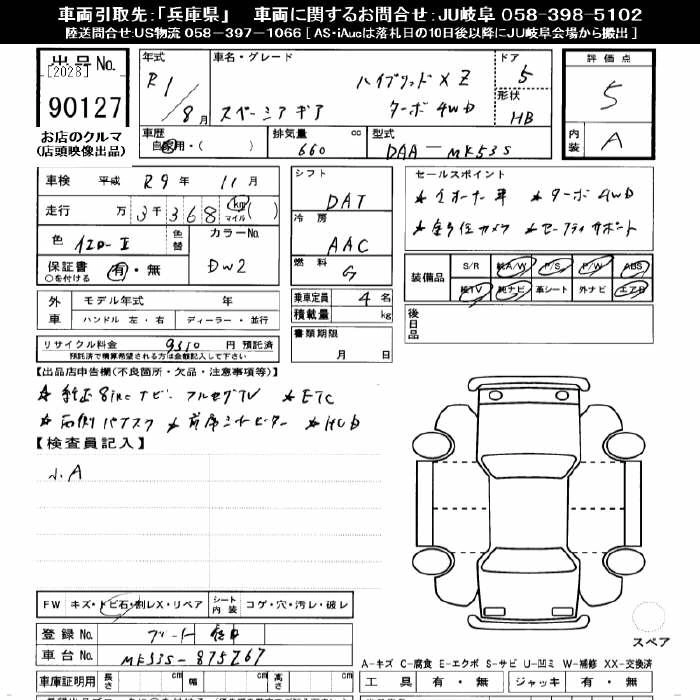 車両引取先：「兵庫県」　車両に関するお問合せ：JU岐阜 058-398-5102
陸送問合せ：US物流 058-397-1066 [ AS・iAucは落札日の10日後以降にJU岐阜会場から搬出 ]
出品No.
[2028]
90127
お店のクルマ
(店頭映像出品)
年式 R1/8月
車名・グレード ハイブリッド X Z
スペーシア ギア ターボ 4WD
ドア 5
形状 HB
評価点 5
内装 A
車歴 自家用・(　　)
排気量 660 cc
型式 DAA-MK53S
車検 平成 R9年 11月
走行 万 3千368 km マイル (　)
色 イエロー II
色替
カラーNo. DW2
保証書 有・無
○を付ける
シフト DAT
冷房 AAC
燃料 G
乗車定員 4名
積載量 kg
書類期限
月　日
セールスポイント
★ 1オーナー車 ★ ターボ 4WD
★ 全方位カメラ ★ セーフティサポート
装備品 S/R 純A/W P/S P/W ABS
純TV 純ナビ 革シート 外ナビ エアB
外車 モデル年式 年
ハンドル 左・右 ディーラー・並行
後日品
リサイクル料金 9510 円 預託済
預託済で精算希望される方は金額記入して下さい
【出品店申告欄(不良箇所・欠品・注意事項等)】
★ 純正8inc ナビ フルセグTV ★ ETC
★ 両側パワスラ ★ 前席シートヒーター ★ HUD
【検査員記入】
小A
FW キズ・トビ石・割レX・リペア シート内装 コゲ・穴・汚レ・破レ
登録No.
車台No. MK53S-875267
車庫証明用 長さ cm 幅 cm 高さ cm
スペア
A-キズ C-腐食 E-エクボ S-サビ U-凹ミ W-補修 XX-交換済
工具 有・無 ジャッキ 有・無